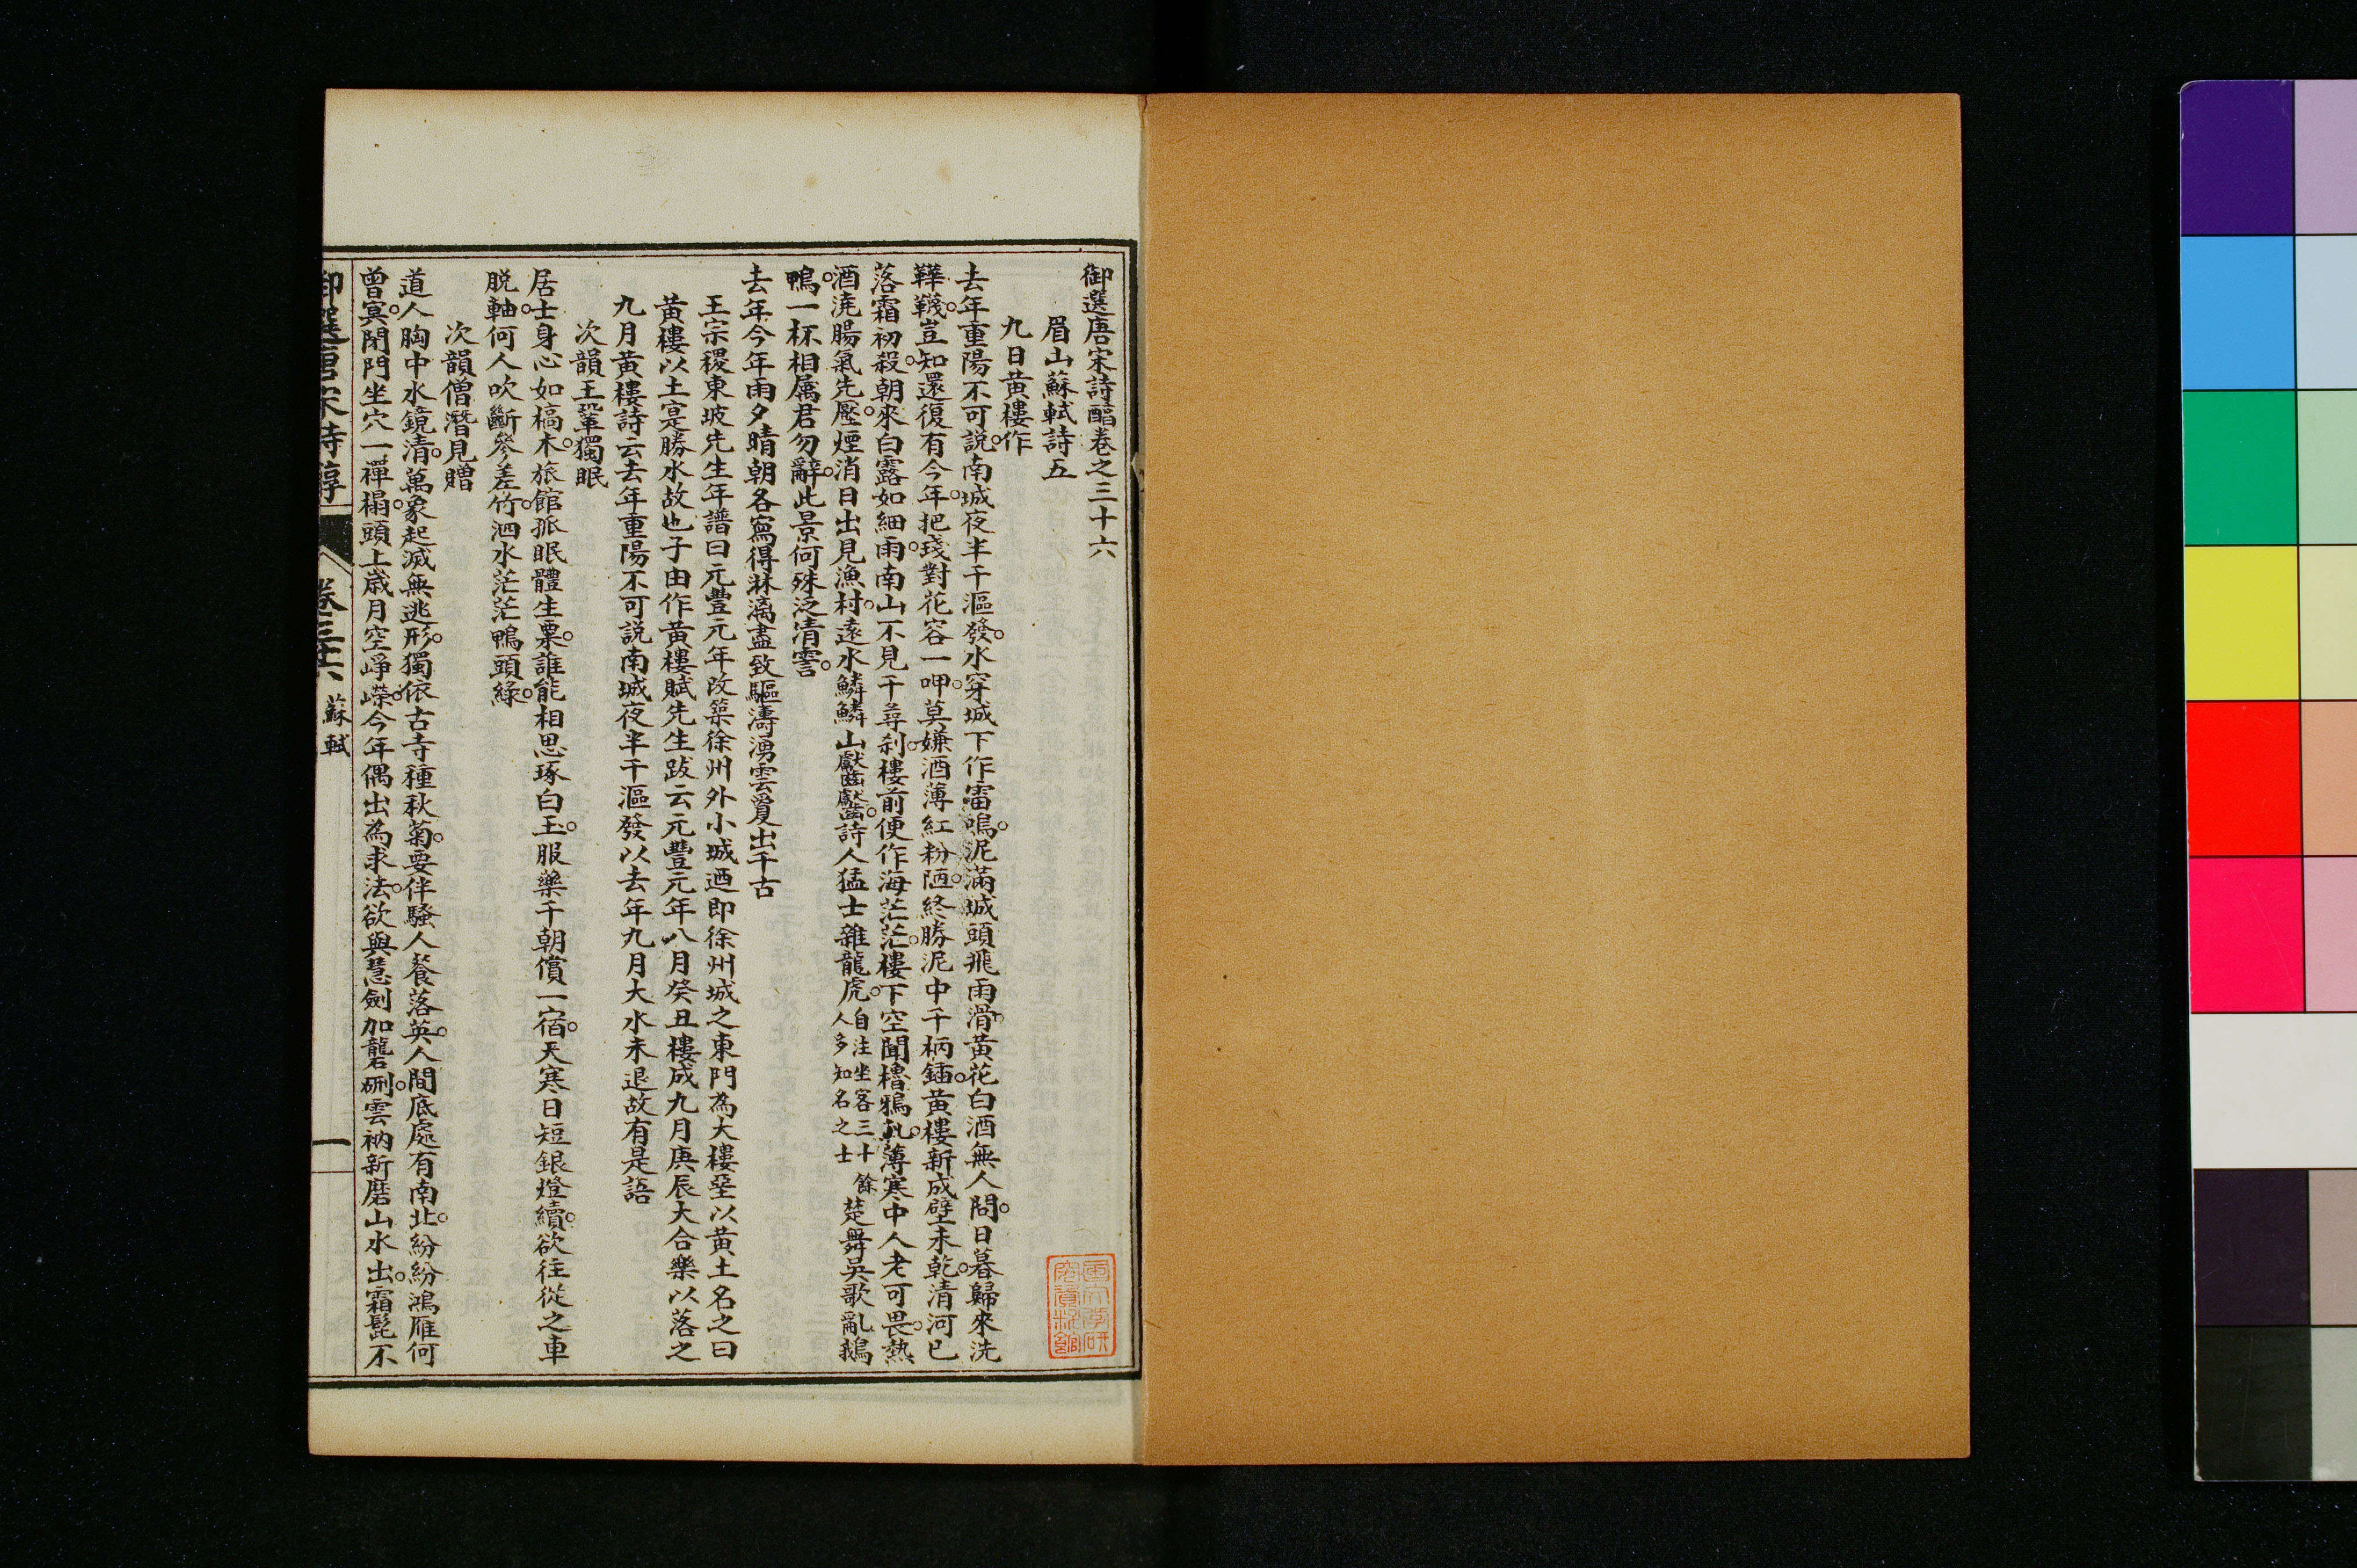 御選唐宋詩醕卷之三十六
眉山蘇軾詩五
九日黄樓作
去年重陽不可説。南城夜半千漚發。水穿城下作雷鳴。泥滿城頭飛雨滑。黄花白酒無人問。日暮歸來洗
鞾韈。豈知還復有今年。把琖對花容一呷。莫嫌酒薄紅粉陋。終勝泥中千柄鍤。黄樓新成壁未乾。清河已
落霜初殺。朝來白露如細雨。南山不見千尋刹。樓前便作海茫茫。樓下空聞櫓鴉軋。薄寒中人老可畏。熱
酒澆腸氣先壓。煙消日出見漁村。遠水鱗鱗山齾齾。詩人猛士雜龍虎。自注坐客三十餘人多知名之士楚舞吳歌亂鵝
鴨。一杯相屬君勿辭。此景何殊泛清霅。
去年今年雨夕晴朝各寫得淋漓盡致驅濤湧雲夐出千古
王宗稷東坡先生年譜曰元豐元年改築徐州外小城迺即徐州城之東門為大樓堊以黄土名之曰
黄樓以土寔勝水故也子由作黄樓賦先生跋云元豐元年八月癸丑樓成九月庚辰大合樂以落之
九月黄樓詩云去年重陽不可説南城夜半千漚發以去年九月大水未退故有是語
次韻王鞏獨眠
居士身心如槁木。旅館孤眠體生粟。誰能相思琢白玉。服藥千朝償一宿。天寒日短銀燈續。欲往從之車
脱軸。何人吹斷參差竹。泗水茫茫鴨頭綠。
次韻僧潛見贈
道人胸中水鏡清。萬象起滅無逃形。獨依古寺種秋菊。要伴騷人餐落英。人間底處有南北。紛紛鴻雁何
曾冥。閉門坐穴一禪榻。頭上歲月空崢嶸。今年偶出為求法。欲與慧劍加礱硎。雲衲新磨山水出。霜髭不
御選唐宋詩醇
卷三十六
蘇軾
一